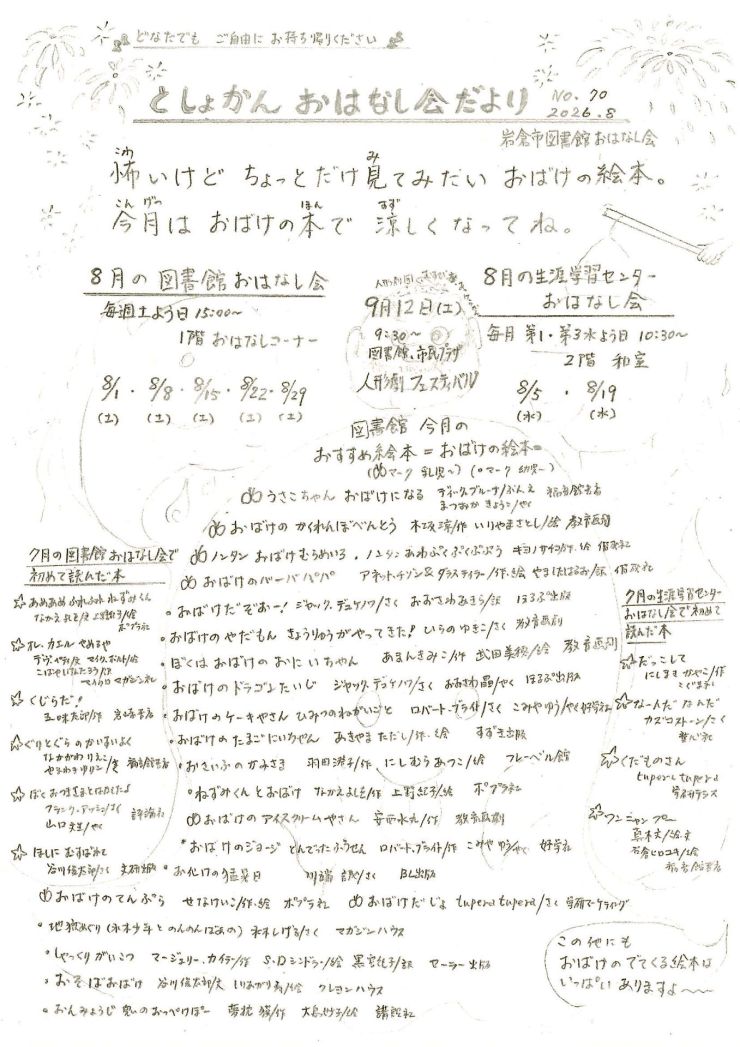 どなたでも ご自由に お持ち帰りください
としょかん おはなし会だより
No. 70
2026.8
岩倉市図書館おはなし会
怖いけど ちょっとだけ見てみたい おばけの絵本。
こわ み
今月は おばけの本で 涼しくなってね。
こんげつ ほん すず
8月の図書館おはなし会
毎週土よう日 15:00〜
1階 おはなしコーナー
8/1・8/8・8/15・8/22・8/29
(土) (土) (土) (土) (土)
9月12日(土)
9:30〜
図書館、市民プラザ
人形劇フェスティバル
8月の生涯学習センター
おはなし会
毎月 第1・第3水よう日 10:30〜
2階 和室
8/5 ・ 8/19
(水) (水)
図書館 今月の
おすすめ絵本=おばけの絵本=
うさこちゃん おばけになる ディック.ブルーナ/ぶん.え 福音館書店
まつおか きょうこ/やく
おばけの かくれんぼべんとう 木坂涼/作 いりやまさとし/絵 教育画劇
ノンタン おばけむらめいろ・ノンタン あわぷくぷくぷぷう キヨノサチコ/作.絵 偕成社
おばけのバーバパパ アネット・チゾン&タラス・テイラー/作.絵 やましたはるお/訳 偕成社
・おばけだぞおー! ジャック.デュケノワ/さく おおさわあきら/訳 ほるぷ出版
・おばけのやだもん きょうりゅうがやってきた! ひらのゆきこ/さく 教育画劇
・ぼくは おばけの おにいちゃん あまんきみこ/作 武田美穂/絵 教育画劇
・おばけのドラゴンたいじ ジャック.デュケノワ/さく おおさわ晶/やく ほるぷ出版
・おばけのケーキやさん ひみつのねがいごと ロバート.ブライト/さく こみやゆう/やく 好学社
・おばけの たまごにいちゃん あきやまただし/作.絵 すずき出版
・おさいふのかみさま 羽田澄子/作 にしむらあつこ/絵 フレーベル館
・ねずみくんとおばけ なかえよしを/作 上野紀子/絵 ポプラ社
おばけのアイスクリームやさん 安西水丸/作 教育画劇
・おばけのジョージ とんでったぼうせん ロバート.ブライト/作 こみやゆう/やく 好学社
・お化けの猛暑日 川端誠/さく BL出版
おばけのてんぷら せなけいこ/作.絵 ポプラ社
おばけだじょ tupera tupera/さく 学研マーケティング
・地獄めぐり(水木少年とのんのんばあの) 水木しげる/さく マガジンハウス
・しゃっくりがいこつ マージェリー.カイラー/作 S.Dシンドラー/絵 黒宮純子/訳 セーラー出版
・おそばおばけ 谷川俊太郎/文 しりあがり寿/絵 クレヨンハウス
・おんみょうじ 鬼のおっぺけぽー 夢枕獏/作 大島妙子/絵 講談社
7月の図書館おはなし会で
初めて読んだ本
☆あめあめふれふれ ねずみくん
なかえよしを/文 上野紀子/絵
ポプラ社
☆オレ、カエルやめるや
デヴ・ペティ/文 マイク.ボルト/絵
こばやしけんたろう/訳
マイクロマガジン社
☆くじらだ!
五味太郎/作 岩崎書店
☆ぐりとぐらのかいすいよく
なかがわりえこ
やまわきゆりこ/さく 福音館書店
☆ぼく おつきさまとはなしたよ
フランク.アッシュ/さく
山口文生/やく 評論社
☆ほしにむすばれて
谷川俊太郎/さく 文研出版
7月の生涯学習センター
おはなし会で初めて
読んだ本
☆だっこして
にしまきかやこ/作
こぐま社
☆なーんだ なんだ
カズコストーン/さく
童心社
☆くだものさん
tupera tupera
学研プラス
☆ワンニャンプー
真木文/絵.文
石倉ヒロユキ/絵
福音館書店
この他にも
おばけのでてくる絵本は
いっぱいありますよ〜〜